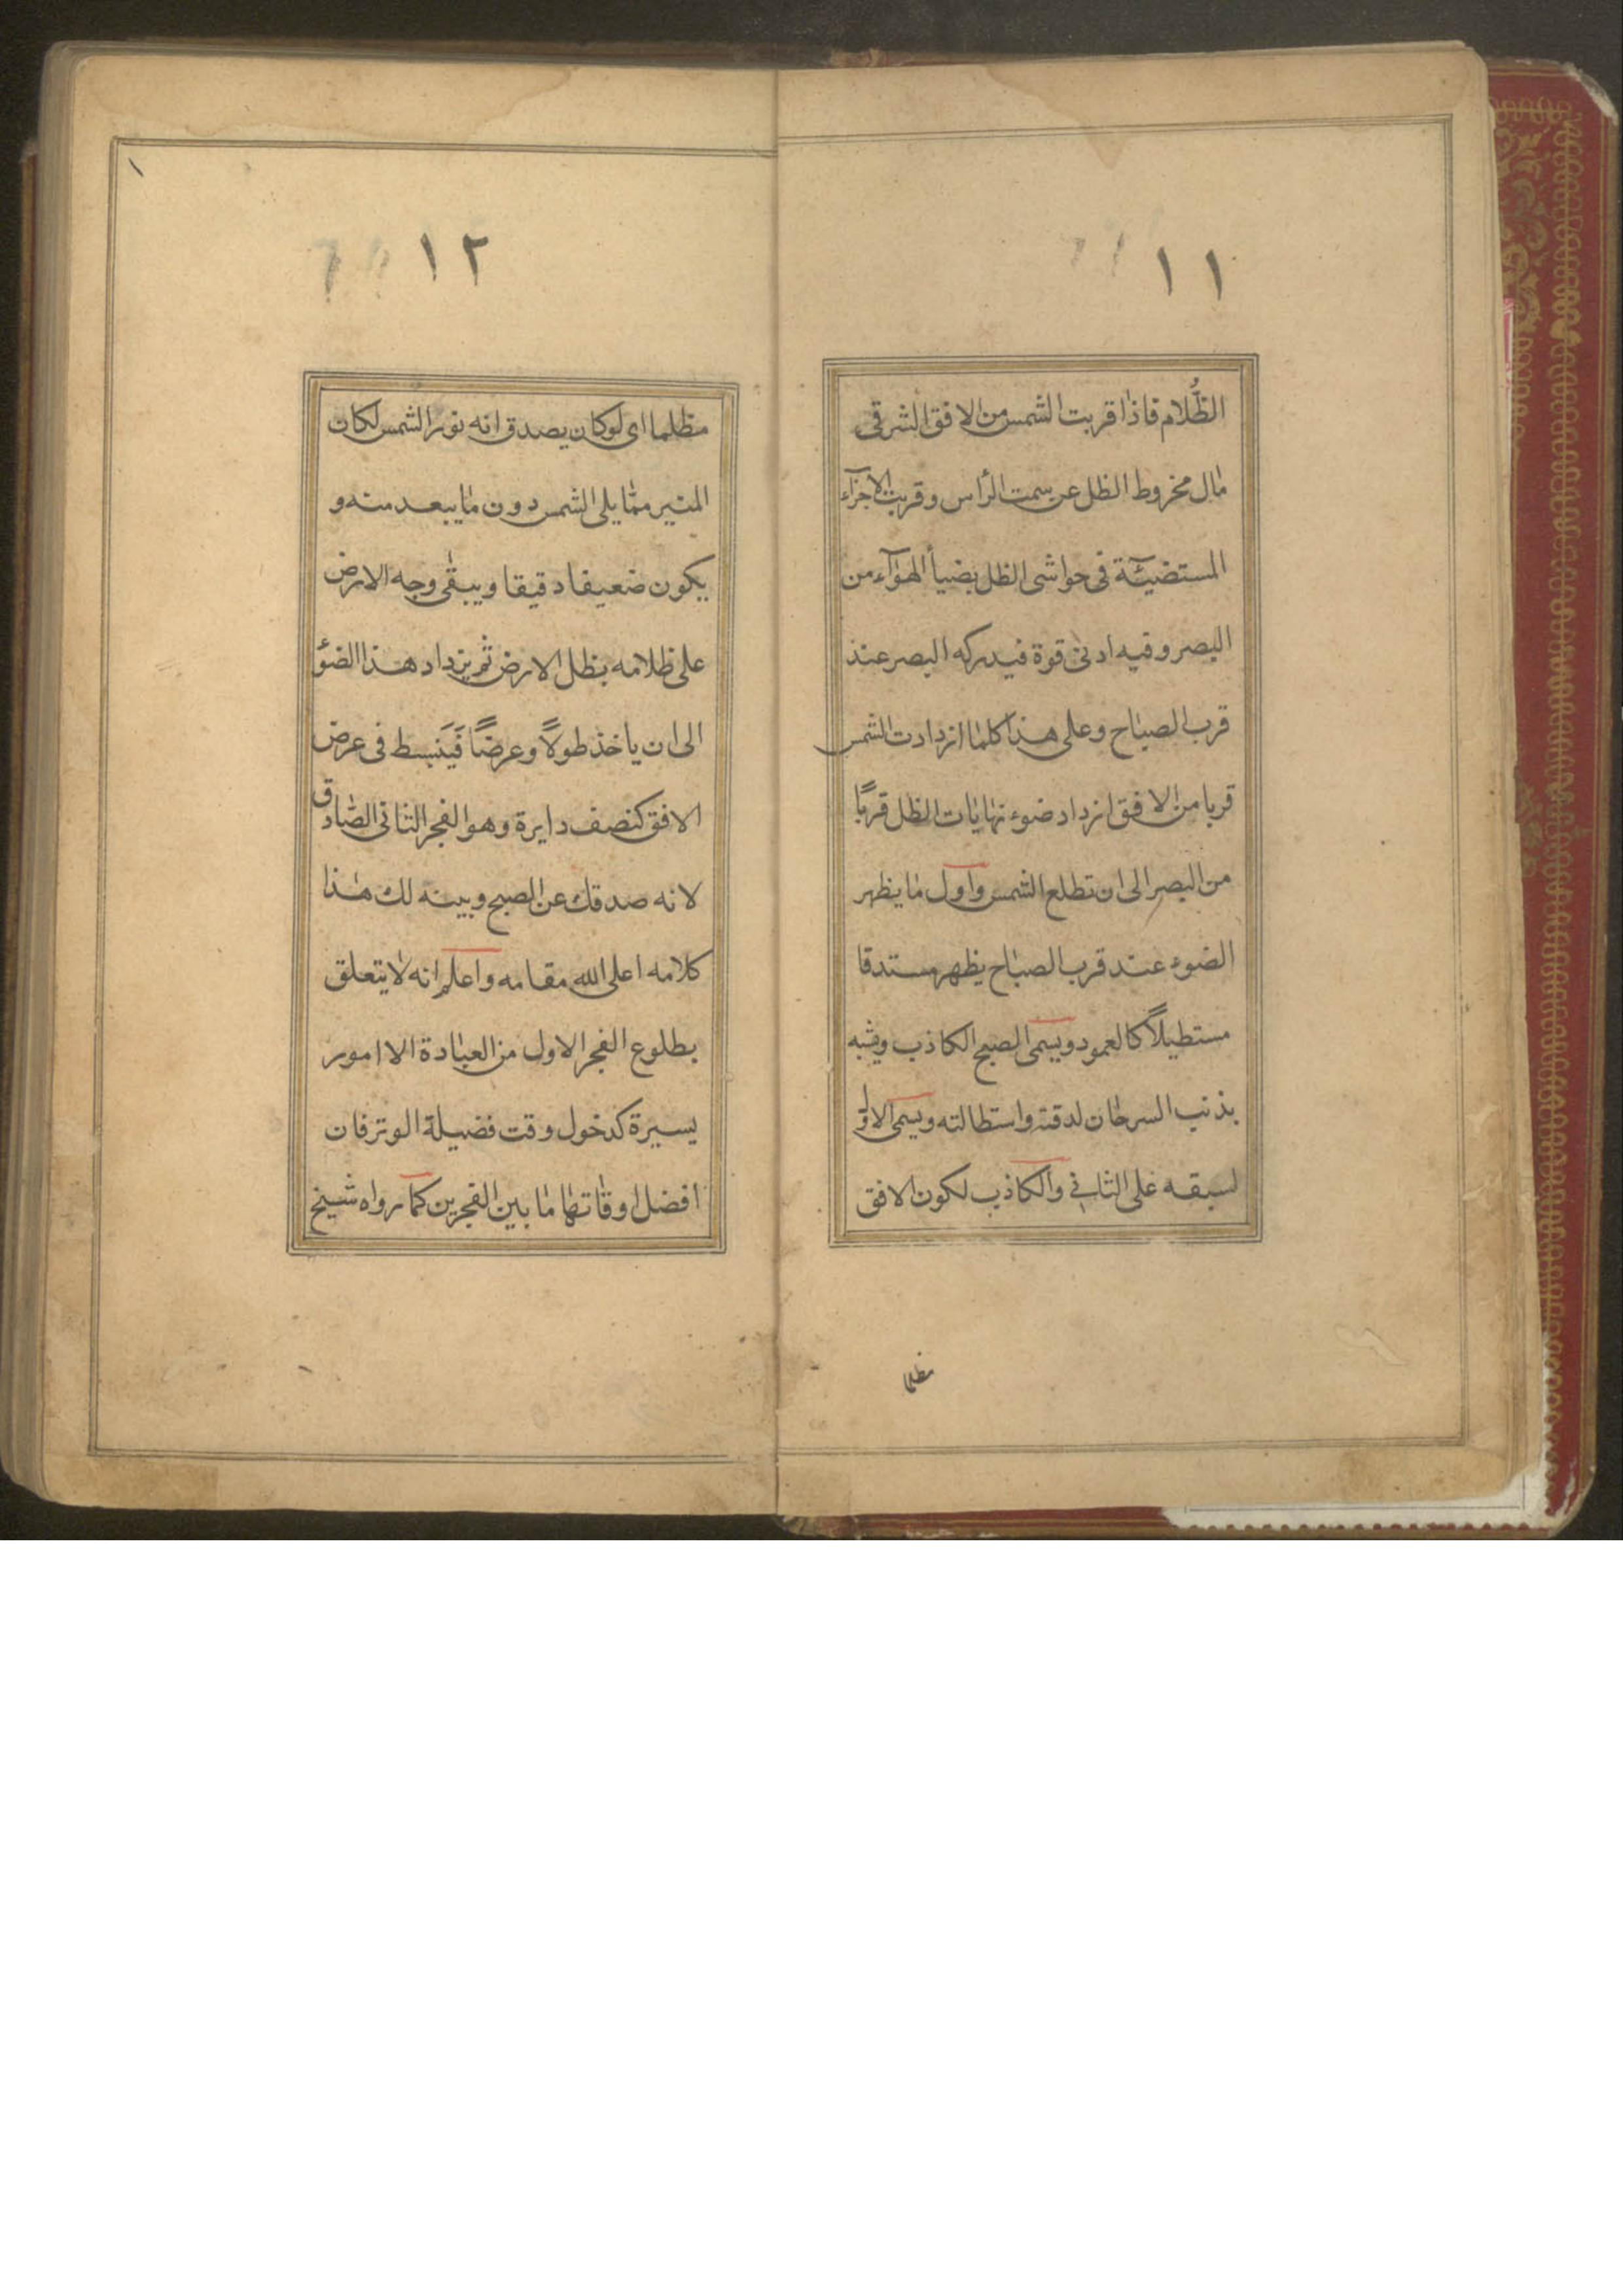 ١١
الظُّلام فاذا قربت الشمس من الافق الشرقى
مال مخروط الظل عن سمت الرأس وقربت الاجزآء
المستضيئة فى حواشى الظل بضيأ الهوآء من
البصر وفيه ادنى قوة فيدركه البصر عند
قرب الصباح وعلى هذا كلما ازدادت الشمس
قربا من الافق ازداد ضوء نهايات الظل قربًا
من البصر الى ان تطلع الشمس واول ما يظهر
الضوء عند قرب الصباح يظهر مستدقا
مستطيلاً كالعمود ويسمى الصبح الكاذب ويشبه
بذنب السرحان لدقته واستطالته ويسمى الاول
لسبقه على الثانى والكاذب لكون الافق
مظلما
١٢
مظلما اى لو كان يصدق انه نور الشمس لكان
المنير مما يلى الشمس دون ما يبعد منه و
يكون ضعيفا دقيقا ويبقى وجه الارض
على ظلامه بظل الارض ثم يزداد هذا الضؤ
الى ان ياخذ طولاً وعرضًا فَيَنبسط فى عرض
الافق كنصف دايرة وهو الفجر الثانى الصادق
لانه صدقك عن الصبح وبينه لك هذا
كلامه اعلى الله مقامه واعلم انه لا يتعلق
بطلوع الفجر الاول من العبادة الا امور
يسيرة كدخول وقت فضيلة الوتر فان
افضل اوقاتها ما بين الفجرين كما رواه شيخ